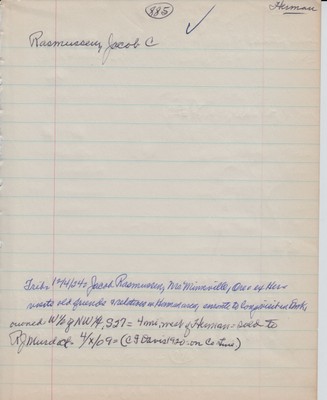 885
Herman
Rasmussen, Jacob C
Trib. 1904 Jacob Rasmussen, Mc Minnville, Ore ex Her
visits old friends & relatives in Herman,
owned W½ of NW¼, S27 = 4 mi. west of Herman = sold to
RJ Murdock 4/x/09 = (C I Davis 1920 on Co line)